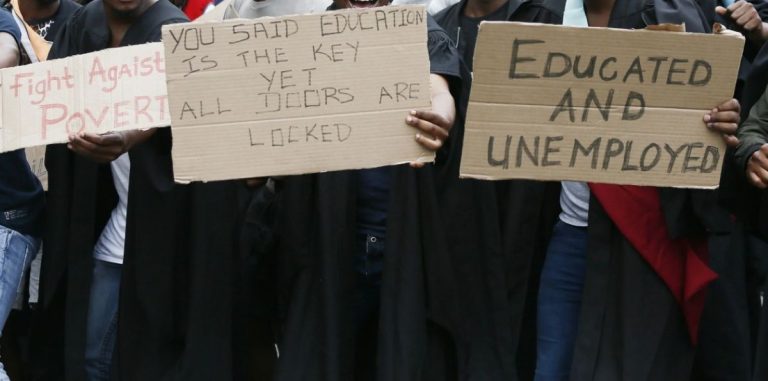 Fight Agaist
POVERT
YOU SAID EDUCATION
IS THE KEY
YET
ALL DOORS ARE
LOCKED
EDUCATED
AND
UNEMPLOYED